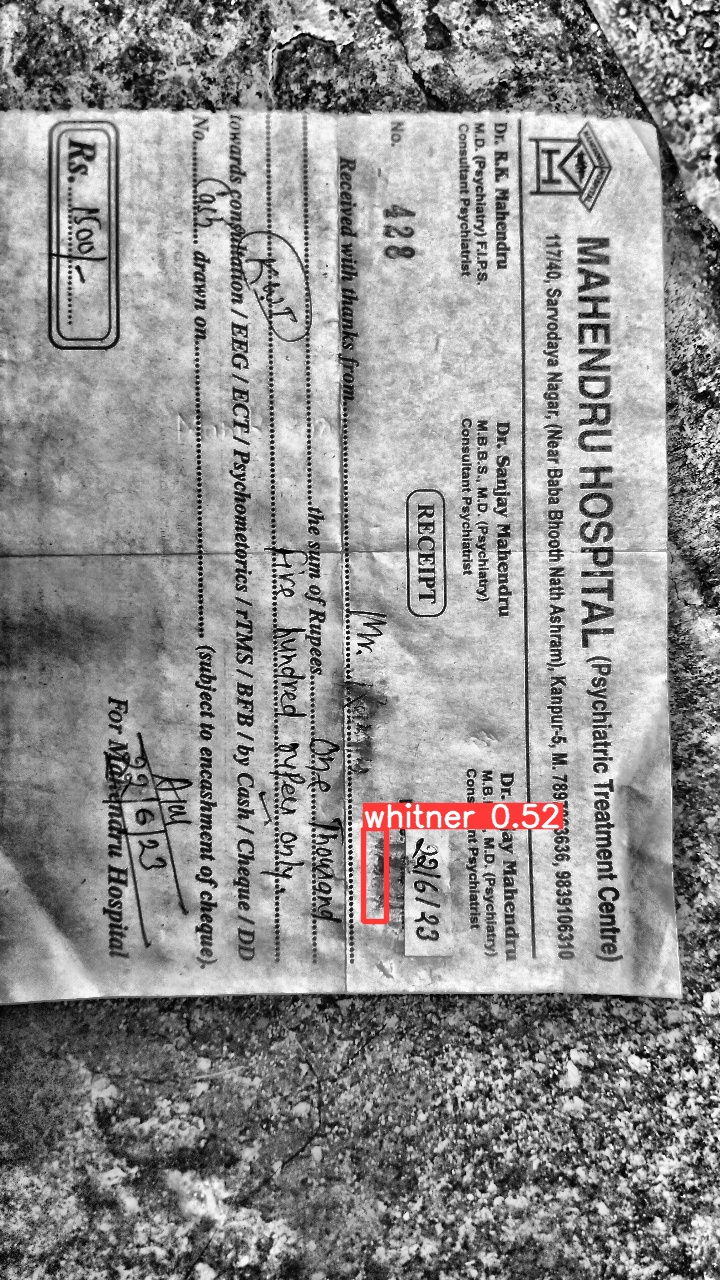 MAHENDRU HOSPITAL (Psychiatric Treatment Centre)
117/40, Sarvodaya Nagar, (Near Baba Bhooth Nath Ashram), Kanpur-5, M. 9839106310
Dr. R.K. Mahendru
M.D. (Psychiatry) F.I.P.S.
Consultant Psychiatrist
Dr. Sanjay Mahendru
M.B.B.S., M.D. (Psychiatry)
Consultant Psychiatrist
Dr. Mahendru
M.D. (Psychiatry)
Psychiatrist
whitner 0.52
No. 428
RECEIPT
22/6/23
Received with thanks from Mr.
the sum of Rupees One Thousand
Five hundred only.
towards consultation / EEG / ECT / Psychometorics / rTMS / BFB / by Cash / Cheque / DD
No. Cash drawn on (subject to encashment of cheque).
Rs. 1500/-
For Mahendru Hospital
22/6/23